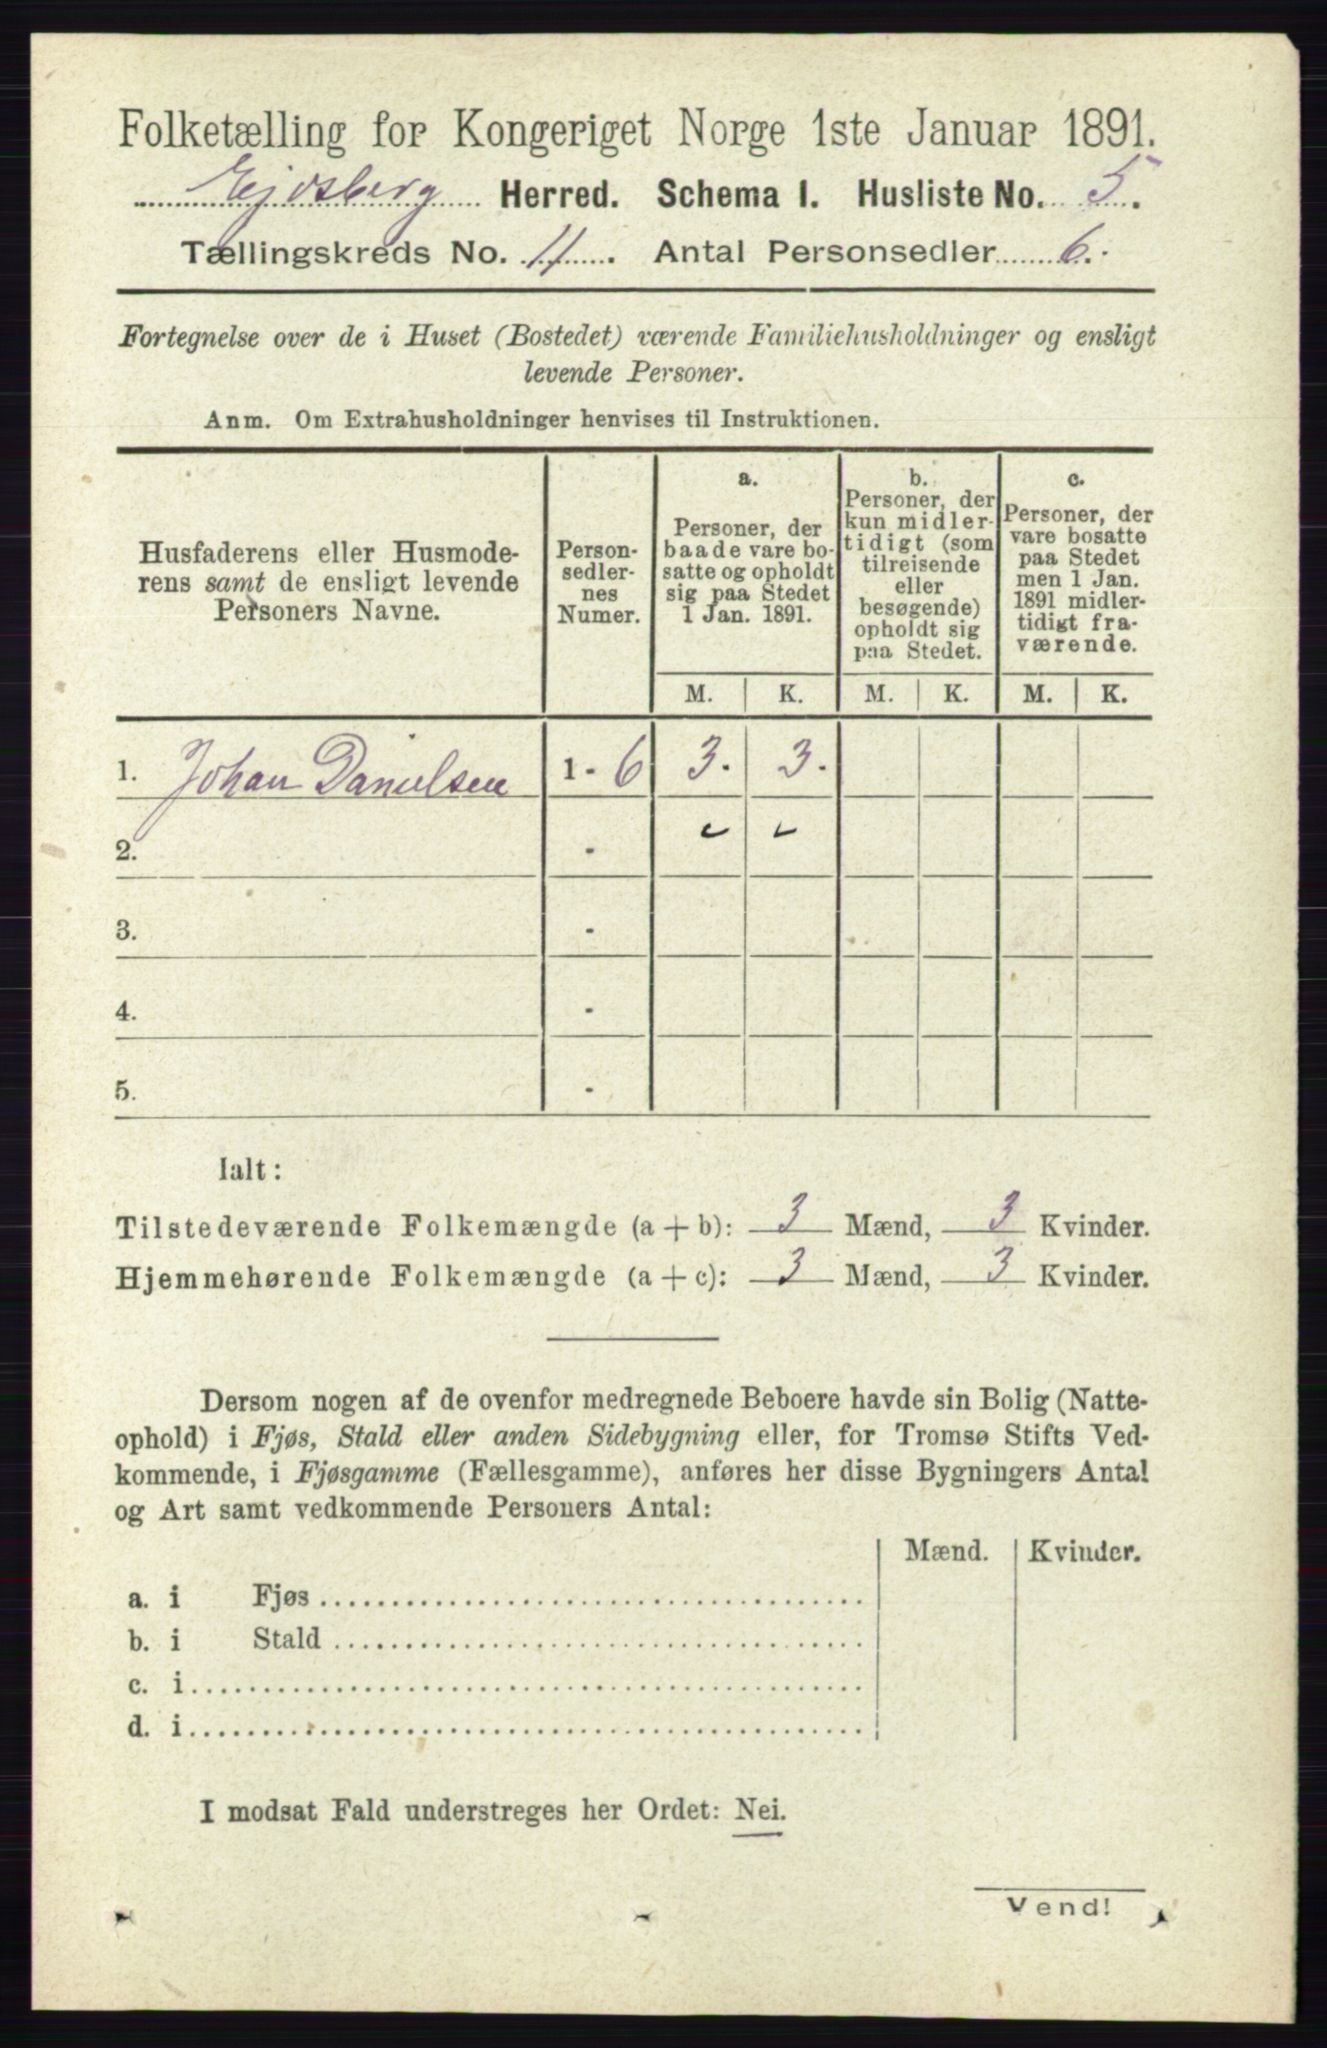 Folketælling for Kongeriget Norge 1ste Januar 1891.
Ejdsberg Herred. Schema I. Husliste No. 5.
Tællingskreds No. 11. Antal Personsedler 6.
Fortegnelse over de i Huset (Bostedet) værende Familiehusholdninger og ensligt
levende Personer.
Anm. Om Extrahusholdninger henvises til Instruktionen.
Husfaderens eller Husmode-
rens samt de ensligt levende
Personers Navne.
Person-
sedler-
nes
Numer.
a.
Personer, der
baade vare bo-
satte og opholdt
sig paa Stedet
1 Jan. 1891.
b.
Personer, der
kun midler-
tidigt (som
tilreisende
eller
besøgende)
opholdt sig
paa Stedet.
c.
Personer, der
vare bosatte
paa Stedet
men 1 Jan.
1891 midler-
tidigt fra-
værende.
M. K. M. K. M. K.
1. Johan Danielsen 1 - 6 3. 3.
2. -
3. -
4. -
5. -
Ialt:
Tilstedeværende Folkemængde (a + b): 3 Mænd, 3 Kvinder.
Hjemmehørende Folkemængde (a + c): 3 Mænd, 3 Kvinder.
Dersom nogen af de ovenfor medregnede Beboere havde sin Bolig (Natte-
ophold) i Fjøs, Stald eller anden Sidebygning eller, for Tromsø Stifts Ved-
kommende, i Fjøsgamme (Fællesgamme), anføres her disse Bygningers Antal
og Art samt vedkommende Personers Antal:
Mænd. Kvinder.
a. i Fjøs
b. i Stald
c. i
d. i
I modsat Fald understreges her Ordet: Nei.
Vend!